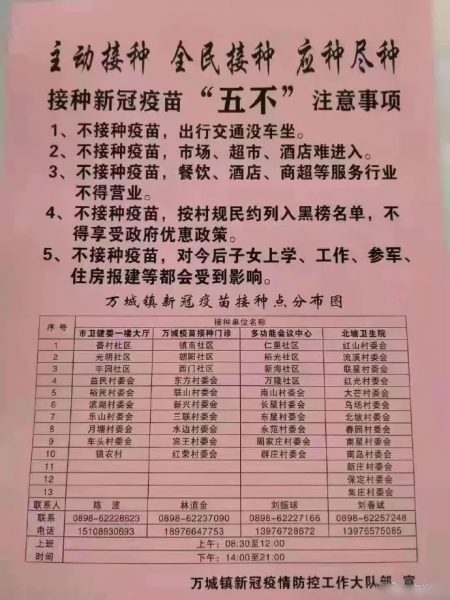 主动接种 全民接种 应种尽种
接种新冠疫苗“五不”注意事项
1、不接种疫苗，出行交通没车坐。
2、不接种疫苗，市场、超市、酒店难进入。
3、不接种疫苗，餐饮、酒店、商超等服务行业
不得营业。
4、不接种疫苗，按村规民约列入黑榜名单，不
得享受政府优惠政策。
5、不接种疫苗，对今后子女上学、工作、参军、
住房报建等都会受到影响。
万城镇新冠疫苗接种点分布图
序号 接种单位名称
市卫健委一楼大厅 万城疫苗接种门诊 多功能会议中心 北坡卫生院
1 番村社区 镇南社区 仁里社区 红山村委会
2 光明社区 朝阳社区 裕光社区 流溪村委会
3 丰园社区 西门社区 新海社区 联星村委会
4 益民村委会 东方村委会 万隆社区 红光村委会
5 裕民村委会 联山村委会 南山村委会 大芒村委会
6 滨湖村委会 新兴村委会 长星村委会 乌场村委会
7 乐山村委会 三联村委会 东星村委会 北坡村委会
8 月塘村委会 水边村委会 永范村委会 春园村委会
9 车头村委会 宾王村委会 周家庄村委会 南星村委会
10 镇农村 红荣村委会 群庄村委会 南岛村委会
11 新庄村委会
12 保定村委会
13 集庄村委会
联系人 陈波 林道金 刘振球 刘春斌
联系 0898-62228623 0898-62237090 0898-62227166 0898-62257248
电话 15108930693 18976647753 13976728167 13976575085
上班 上午：08:30至12:00
时间 下午：14:00至21:00
万城镇新冠疫情防控工作大队部 宣